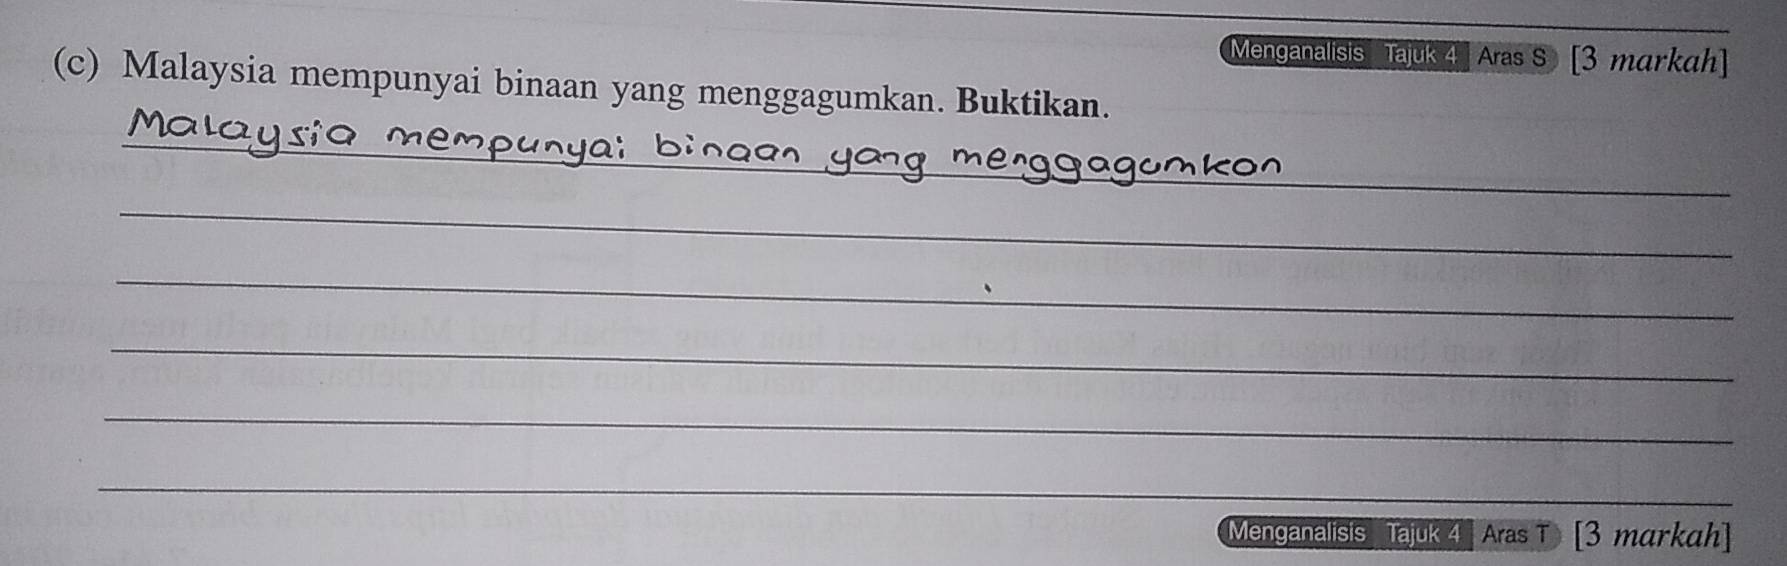 Menganalisis Tajuk 4 Aras S [3 markah]
(c) Malaysia mempunyai binaan yang menggagumkan. Buktikan.
Malaysia mempunyai binaan yang menggagumkan
Menganalisis Tajuk 4 Aras T [3 markah]